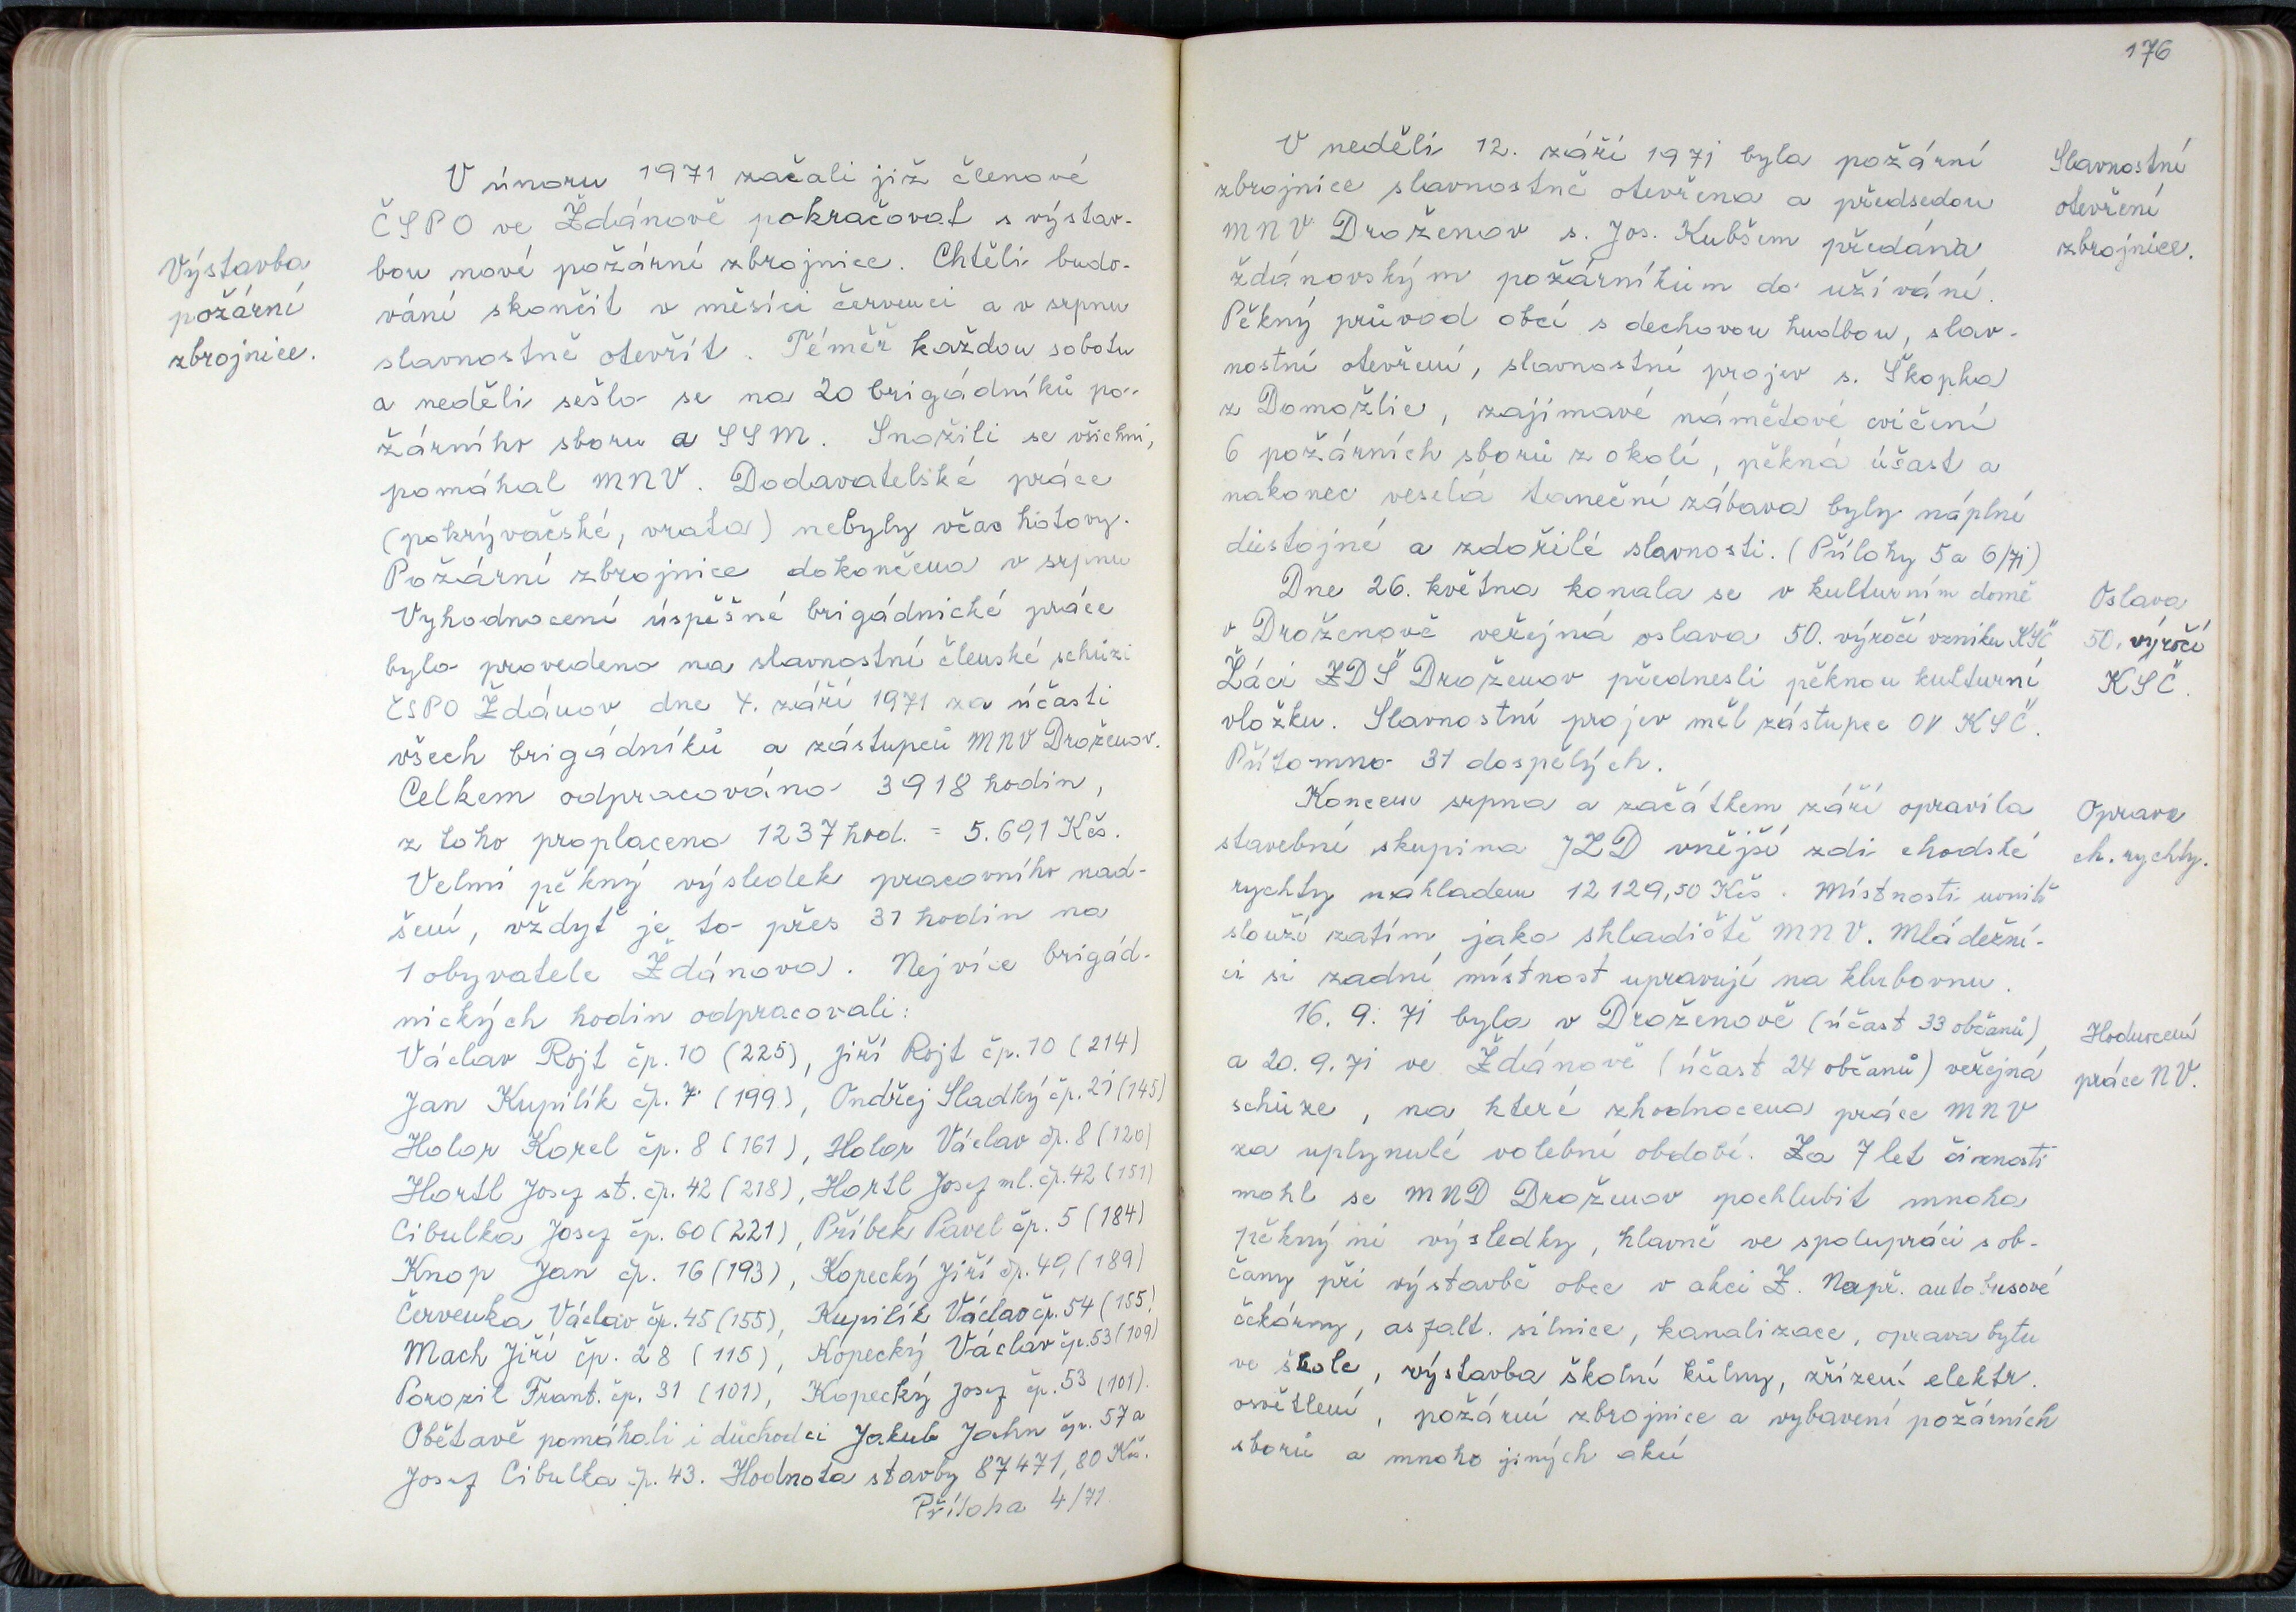 V únoru 1971 začali již členové
ČSPO ve Ždánově pokračovat s výstav-
Výstavba
požární
zbrojnice.
bou nové požární zbrojnice. Chtěli budo-
vání skončit v měsíci červenci a v srpnu
slavnostně otevřít. Téměř každou sobotu
a neděli sešlo se na 20 brigádníků po-
žárního sboru a SSM. Snažili se všichni,
pomáhal MNV. Dodavatelské práce
(pokrývačské, vrata) nebyly včas hotovy.
Požární zbrojnice dokončena v srpnu
Vyhodnocení úspěšné brigádnické práce
bylo provedeno na slavnostní členské schůzi
ČSPO Ždánov dne 4. září 1971 za účasti
všech brigádníků a zástupců MNV Draženov.
Celkem odpracováno 3918 hodin,
z toho proplaceno 1237 hod. = 5.691 Kčs.
Velmi pěkný výsledek pracovního nad-
šení, vždyť je to přes 31 hodin na
1 obyvatele Ždánova. Nejvíce brigád-
nických hodin odpracovali:
Václav Rojt čp. 10 (225), Jiří Rojt čp. 10 (214)
Jan Kupilík čp. 7 (199), Ondřej Sladký čp. 21 (145)
Holor Karel čp. 8 (161), Holor Václav čp. 8 (120)
Hortl Josef st. čp. 42 (218), Hortl Josef ml. čp. 42 (151)
Cibulka Josef čp. 60 (221), Příbek Pavel čp. 5 (184)
Knop Jan čp. 16 (193), Kopecký Jiří čp. 49, (189)
Červenka Václav čp. 45 (155), Kupilík Václav čp. 54 (155)
Mach Jiří čp. 28 (115), Kopecký Václav čp. 53 (109)
Porazil Frant. čp. 31 (101), Kopecký Josef čp. 53 (101).
Obětavě pomáhali i důchodci Jakub Jahn čp. 57 a
Josef Cibulka čp. 43. Hodnota stavby 87471,80 Kčs.
Příloha 4/71
176
V neděli 12. září 1971 byla požární
zbrojnice slavnostně otevřena a předsedou
MNV Draženov s. Jos. Kubšem předána
ždánovským požárníkům do užívání.
Slavnostní
otevření
zbrojnice.
Pěkný průvod obcí s dechovou hudbou, slav-
nostní otevření, slavnostní projev s. Škopka
z Domažlic, zajímavé námětové cvičení
6 požárních sborů z okolí, pěkná účast a
nakonec veselá taneční zábava byly náplní
důstojné a zdařilé slavnosti. (Přílohy 5 a 6/71)
Dne 26. května konala se v kulturním domě
v Draženově veřejná oslava 50. výročí vzniku KSČ
Žáci ZDŠ Draženov přednesli pěknou kulturní
vložku. Slavnostní projev měl zástupce OV KSČ.
Přítomno 31 dospělých.
Oslava
50. výročí
KSČ.
Koncem srpna a začátkem září opravila
stavební skupina JZD vnější zdi chodské
rychty nákladem 12129,50 Kčs. Místnosti uvnitř
slouží zatím jako skladiště MNV. Mládežní-
ci si zadní místnost upravují na klubovnu.
Oprava
ch. rychty.
16. 9. 71 byla v Draženově (účast 33 občanů)
a 20. 9. 71 ve Ždánově (účast 24 občanů) veřejná
schůze, na které zhodnocena práce MNV
za uplynulé volební období. Za 7 let činnosti
Hodnocení
práce NV.
mohl se MND Draženov pochlubit mnoha
pěknými výsledky, hlavně ve spolupráci s ob-
čany při výstavbě obce v akci Z. Např. autobusové
čekárny, asfalt. silnice, kanalizace, oprava bytu
ve škole, výstavba školní kůlny, zřízení elektr.
osvětlení, požární zbrojnice a vybavení požárních
sborů a mnoho jiných akcí